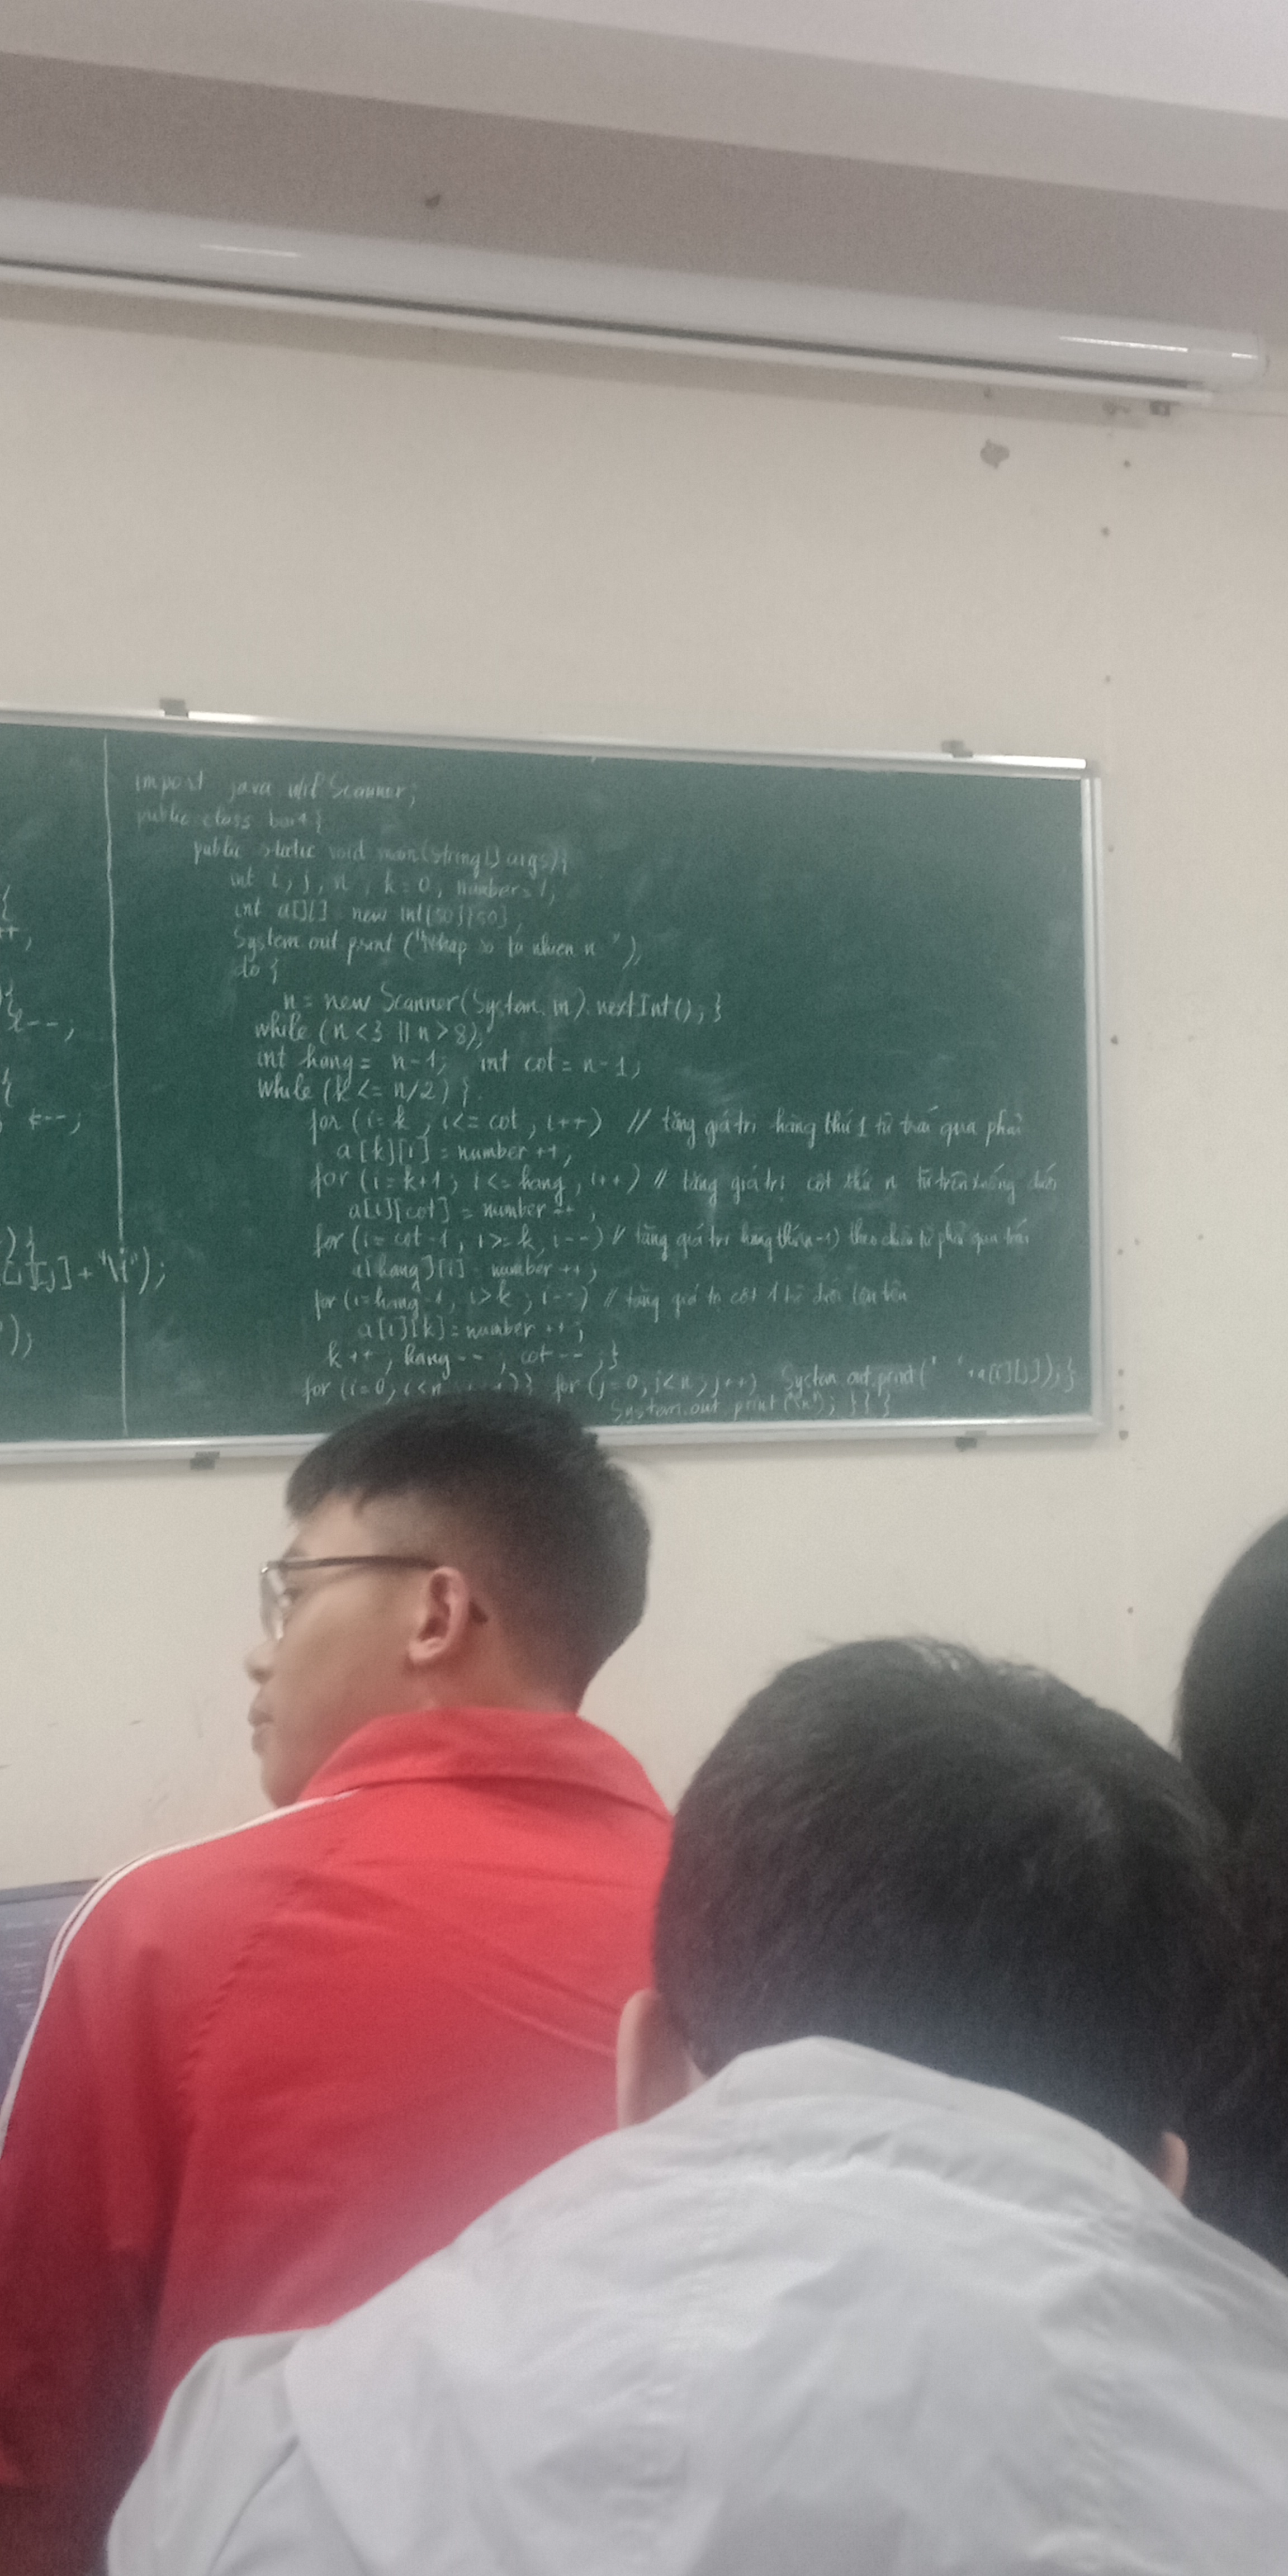 {
++;
{
--;
{
--;
) {
[j] + "\t");
");
import java util Scanner;
public class bai4 {
public static void main(String[] args) {
int i, j, n, k=0, number=1;
int a[][] = new int[50][50];
System.out.print ("Nhap so tu nhien n ");
do {
n = new Scanner(System.in).nextInt(); }
while (n<3 || n>8);
int hang = n-1; int cot = n-1;
while (k <= n/2) {
for (i=k; i<=cot; i++) // tăng giá trị hàng thứ 1 từ trái qua phải
a[k][i] = number ++;
for (i=k+1; i<=hang; i++) // tăng giá trị cột thứ n từ trên xuống dưới
a[i][cot] = number ++;
for (i=cot-1; i>=k; i--) // tăng giá trị hàng thứ (n-1) theo chiều từ phải qua trái
a[hang][i] = number ++;
for (i=hang-1; i>k; i--) // tăng giá trị cột 1 từ dưới lên trên
a[i][k] = number ++;
k++; hang --; cot -- ; }
for (i=0; i<n; { for (j=0; j<n; j++) System.out.print(" "+a[i][j]); }
System.out.print("\n"); } } }